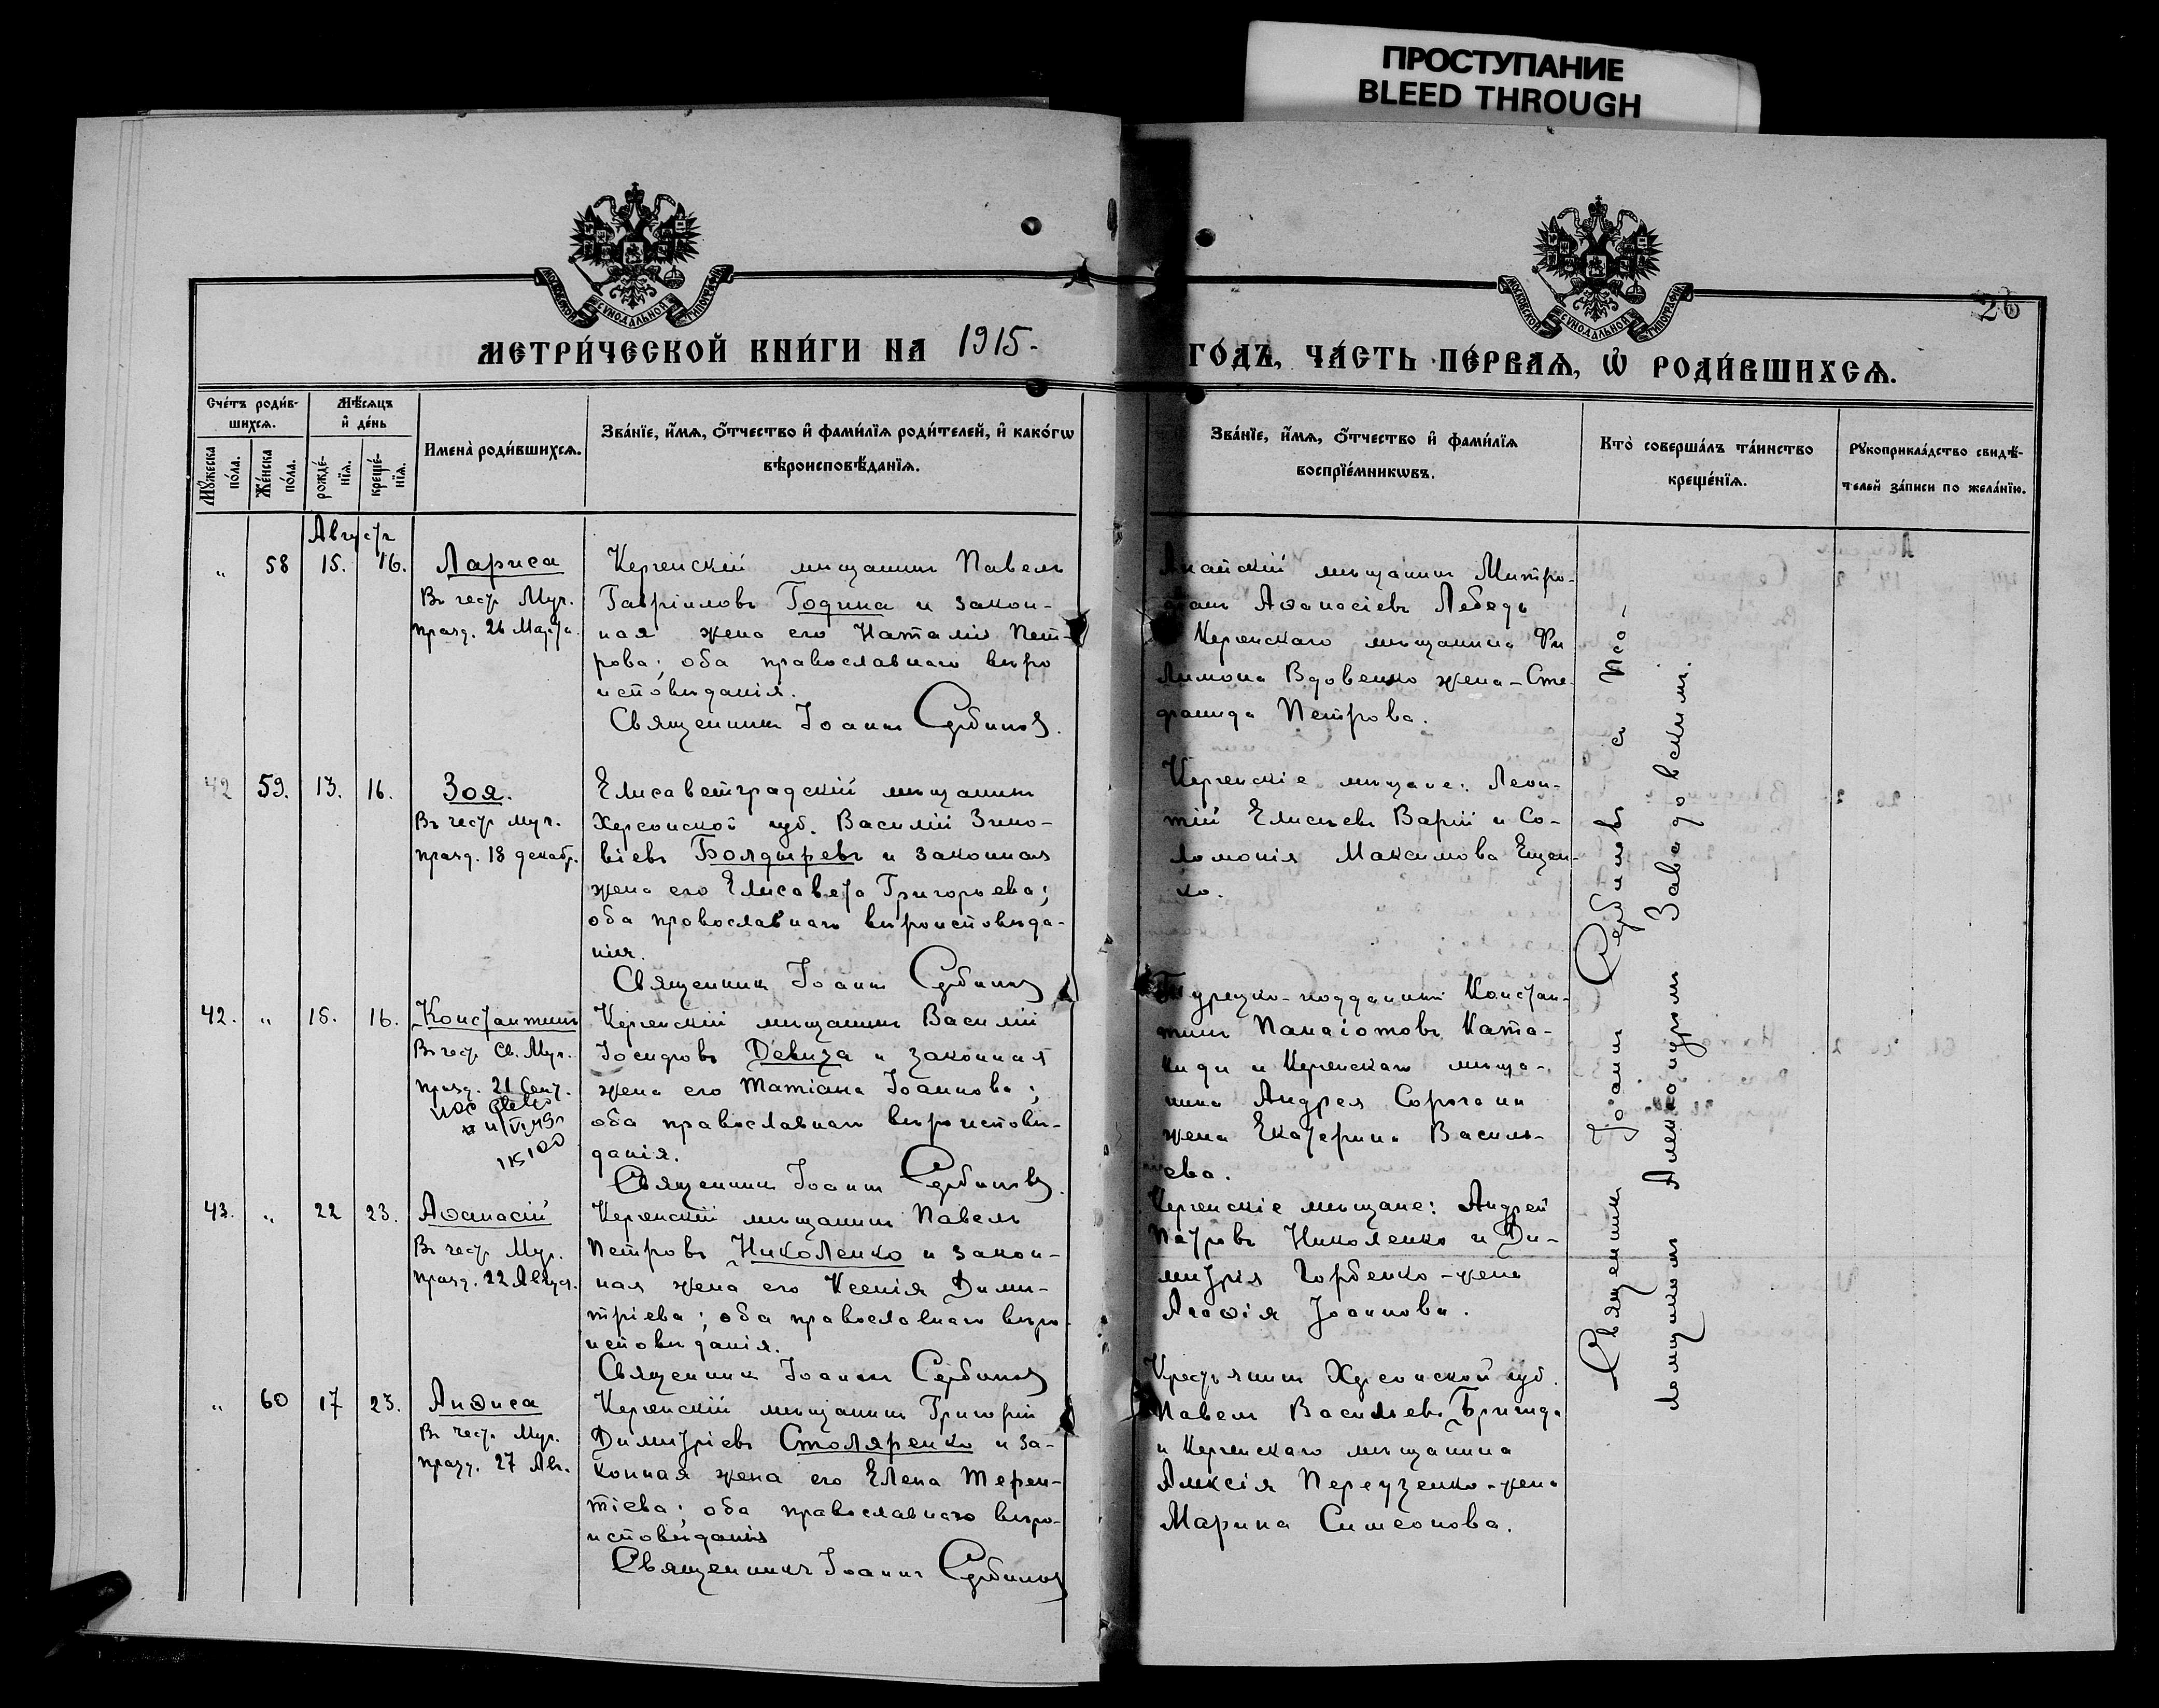 ПРОСТУПАНИЕ
BLEED THROUGH
26
МЕТРИ́ЧЕСКОЙ КНИ́ГИ НА 1915.
ГО́ДЪ, ЧА́СТЬ ПЕ́РВАѦ, Ѡ҆ РОДИ́ВШИХСѦ.
Сче́тъ роди́в-
шихсѧ.
Мꙋ́жеска по́ла.
Же́нска по́ла.
Мѣ́сѧцъ
и҆ де́нь
рожде́-
нїѧ.
креще́-
нїѧ.
Имена̀ роди́вшихсѧ.
Зва́нїе, и҆́мѧ, ѻ҆́тчество и҆ фами́лїѧ роди́телей, и҆ како́гѡ
вѣроисповѣ́данїѧ.
Зва́нїе, и҆́мѧ, ѻ҆́тчество и҆ фами́лїѧ
воспрїе́мникѡвъ.
Кто̀ соверша́лъ та́инство
креще́нїѧ.
Рꙋкоприкла́дство свидѣ́-
телей за́писи по жела́нїю.
Августъ
„ 58 15. 16.
Лариса
Въ честь Муч.
празд. 26 Марта.
Керченскій мѣщанинъ Павелъ
Гавріиловъ Година и закон-
ная жена его Наталія Пет-
рова; оба православнаго вѣро
исповѣданія.
Священникъ Іоаннъ Сербиновъ.
Анапскій мѣщанинъ Митро-
фанъ Аѳанасіевъ Лебедь
Керченскаго мѣщанина Фи
лимона Вдовенко жена - Сте-
фанида Петрова.
42 59. 13. 16.
Зоя.
Въ честь муч.
празд. 18 декабр.
Елисаветградскій мѣщанинъ
Херсонской губ. Василій Зино-
віевъ Болдыревъ и законная
жена его Елисавета Григорьева;
оба православнаго вѣроисповѣда-
нія.
Священникъ Іоаннъ Сербиновъ
Керченскіе мѣщане: Леон-
тій Елисѣевъ Варій и Со-
ломонія Максимова Ещен-
ко.
42. „ 15. 16.
Константинъ
Въ честь Св. Муч.
празд. 21 Сент.
Керченскій мѣщанинъ Василій
Іосифовъ Девиза и законная
жена его Татіана Іоаннова;
оба православнаго вѣроисповѣ-
данія.
Священникъ Іоаннъ Сербиновъ.
Турецко-подданный Констан-
тинъ Панаіотовъ Ката-
киди и Керченскаго мѣща-
нина Андрея Сорочани
жена Екатерина Василь-
ева.
43. „ 22 23.
Аѳанасій
Въ честь Муч.
празд. 22 Август.
Керченскій мѣщанинъ Павелъ
Петровъ Николенко и закон-
ная жена его Ксенія Дими-
тріева; оба православнаго вѣро-
исповѣданія.
Священникъ Іоаннъ Сербиновъ
Керченскіе мѣщане: Андрей
Петровъ Николенко и Ди-
митрія Горбенко - жена
Агаѳія Іоаннова.
„ 60 17 23.
Анѳиса
Въ честь Муч.
празд. 27 Авг.
Керченскій мѣщанинъ Григорій
Димитріевъ Столяренко и за-
конная жена его Елена Терен-
тіева; оба православнаго вѣро-
исповѣданія
Священникъ Іоаннъ Сербиновъ
Крестьянинъ Херсонской губ.
Павелъ Васильевъ Бригида
и Керченскаго мѣщанина
Алексія Переузенко - жена
Марина Симеонова.
Священникъ Іоаннъ Сербиновъ съ Пса-
ломщикомъ Александромъ Завадовскимъ.